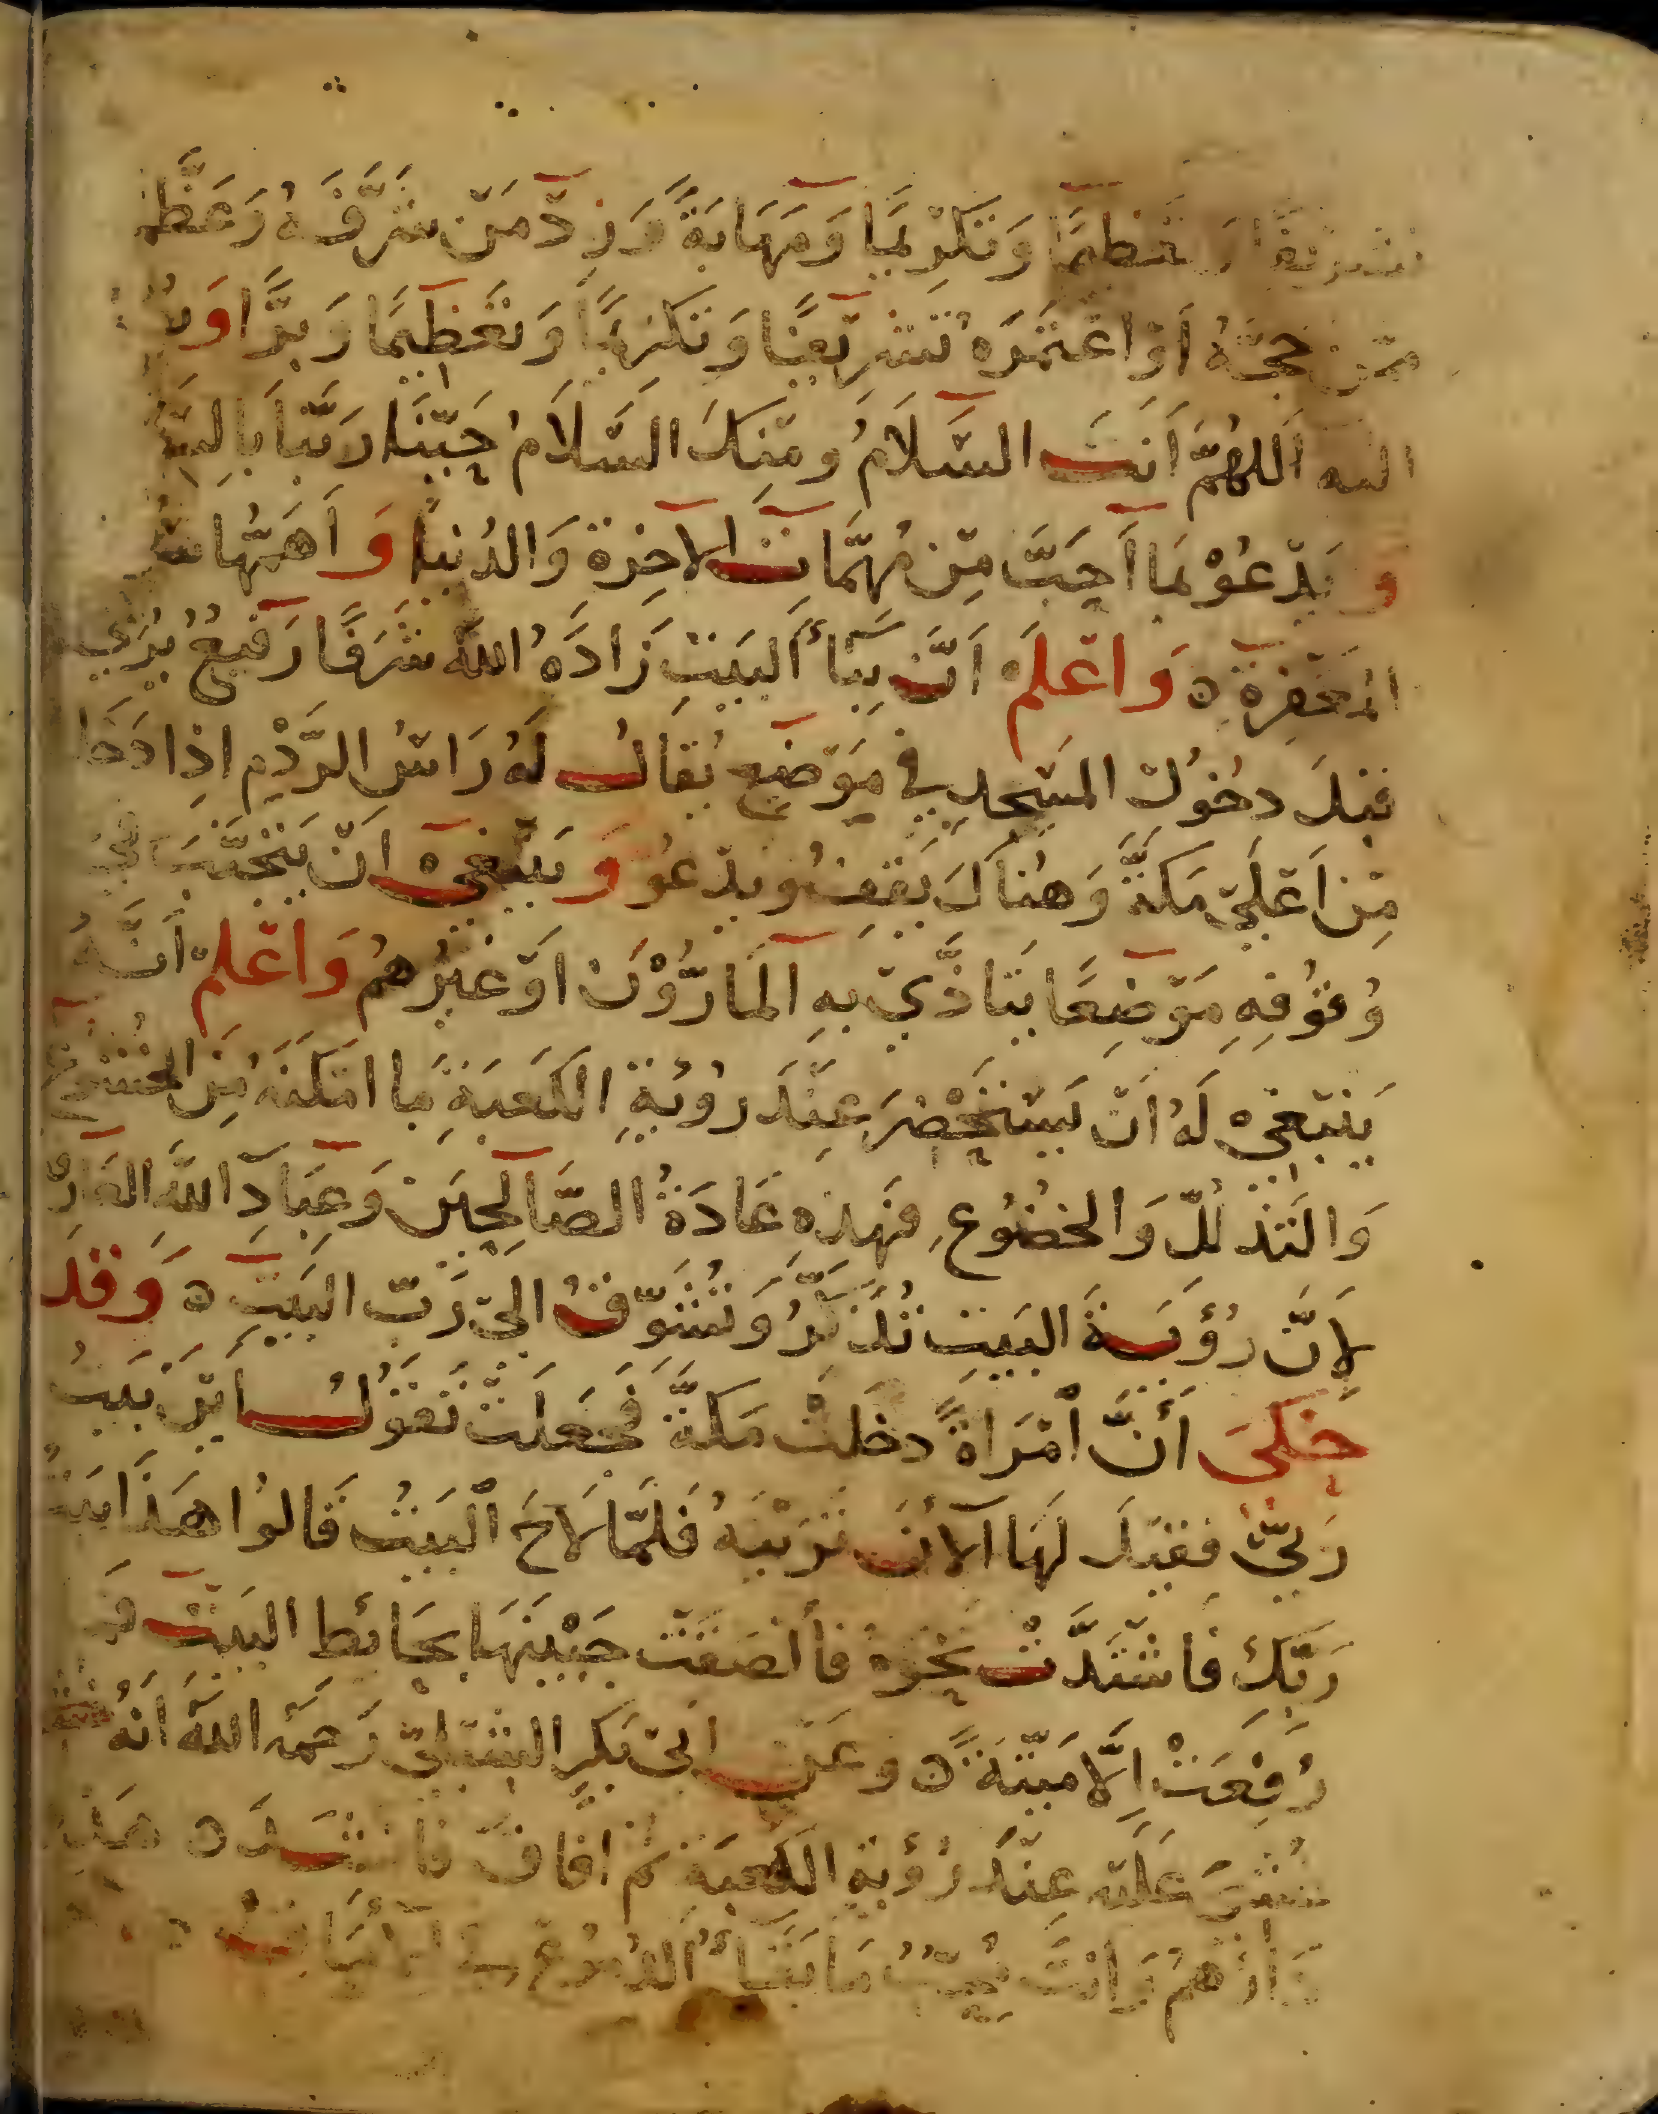 تشريفًا وتعظيمًا وَتَكْرِيمًا وَمَهَابَةً وَزِدْ مَنْ شَرَّفَهُ وَعَظَّمَ
مِمَّنْ حَجَّهُ أَوْ اعْتَمَرَهُ تَشْرِيفًا وَتَكْرِيمًا وَتَعْظِيمًا وَبِرًّا وَ
اللهم أَنْتَ السَّلَامُ وَمِنْكَ السَّلَامُ حَيِّنَا رَبَّنَا بِالسَّ
وَيَدْعُوْ بِمَا أَحَبَّ مِنْ مُهِمَّاتِ الآخِرَةِ وَالدُنْيَا وَأَهَمُّهَا
المَغْفِرَةِ ه وَاعْلَمْ أَنَّ بِنَاءَ البَيْتِ زَادَهُ اللهُ شَرَفًا رَفِيعٌ يُرَى
قبلَ دخُولِ المَسْجِدِ فِي مَوْضِعٍ يُقَالُ لَهُ رَاسُ الرَّدْمِ اذِا دَخَلَ
مِنْ اَعْلَى مَكَّةَ وَهُنَاكَ يَقِفُ وَيدْعُو وَيَنْبَغِىْ اَنْ يَتَجَنَّبَ فِي
وُقُوْفِهِ مَوْضِعًا يَتَاذَّى بِهِ المَارُّوْنَ اَوْ غَيْرُهُمْ وَاعْلَمْ أَنَّهُ
يَنْبَغِىْ لَهُ اَنْ يَسْتَحْضِرَ عِنْدَ رُؤيَةِ الكَعْبَةِ مَا امْكَنَهُ مِنَ الخُشُوعِ
وَالتَذَلُّلِ وَالخضُوعِ فهَذِهِ عَادَةُ الصَّالِحِيْنَ وَعِبَادِ اللهِ العَارِ
لِاَنَّ رُؤيَةَ البَيْتِ تُذَكِّرُ وَتُشَوِّقُ الَى رَبِّ البَيْتِ ه وَقَدْ
حُكِىَ أَنَّ امْرَاةً دخَلَتْ مَكَّةَ فَجَعَلَتْ تَقُوْلُ اَيْنَ بَيْتُ
رَبِّى فقيلَ لَهَا الآنَ تَرَيْنَهُ فَلَمَّا لَاحَ الْبَيْتُ قَالُوا هَذَا بَيْتُ
رَبِّكِ فَاشْتَدَّتْ نَحْوَهُ فَألصَقَتْ جَبِيْنَهَا بِحَائِطِ البَيْتِ فَ
رُفِعَتْ إِلَّا مَيِّتَةً ه وعَنْ ابى بَكرٍ الشبْلِىّ رَحِمَهُ اللهُ انَهُ
غُشِىَ عَلَيْهِ عِنْدَ رُؤيَةِ الكعبَةِ ثُمَ افَاقَ فَانْشَدَ ه هَذِهِ
دَارُهُمْ وَانْتَ مُحِبٌّ مَا بَقَاءُ الدُمُوعِ فِى الامَاقِ ه